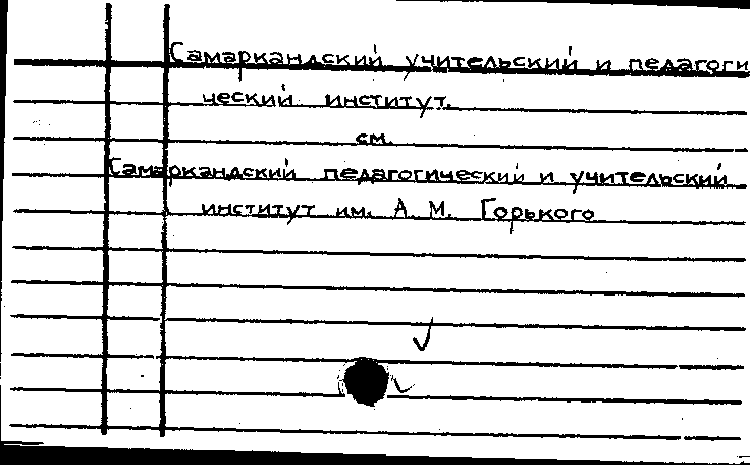 Самаркандский учительский и педагоги
ческий институт.
см.
Самаркандский педагогический и учительский
институт им. А. М. Горького